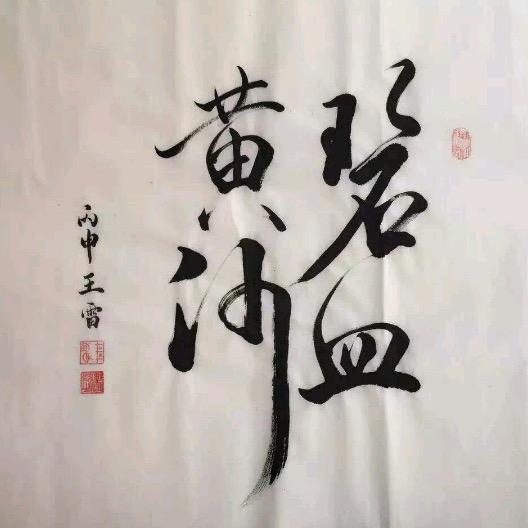 碧血
黄沙
丙申王雷